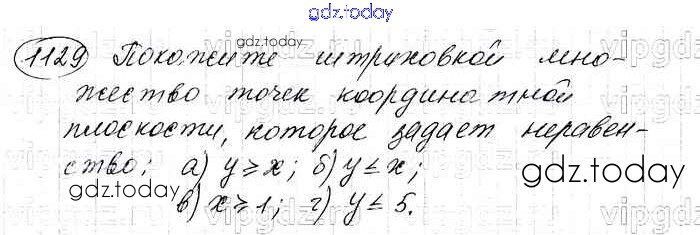 gdz.today
1129 Покажите штриховкой мно-
gdz.today
жество точек координатной
плоскости, которое задает неравен-
ство: а) y ≥ x; б) y ≤ x;
gdz.today
в) x ≥ 1; г) y ≤ 5.
gdz.today